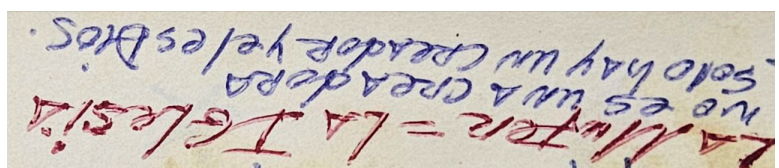 LA MUJER = LA IGLESIA
NO ES UNA CREADORA
Solo hay un CREADOR y el es DIOS.